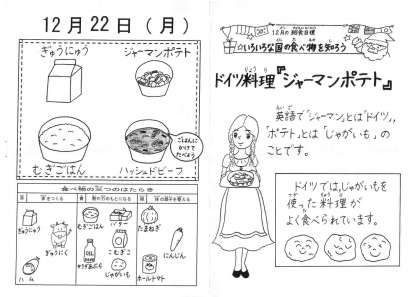 12月22日(月)
ぎゅうにゅう
ジャーマンポテト
むぎごはん
ハッシュドビーフ
ごはんに
かけて
たべよう
食べ物の三つのはたらき
ぎゅうにゅう
ぎゅうにく
ハム
むぎごはん
バター
こむぎこ
じゃがいも
たまねぎ
にんじん
ホールトマト
12月の給食目標
☆いろいろな国の食べ物を知ろう
ドイツ料理『ジャーマンポテト』
英語で「ジャーマン」とは「ドイツ」、
「ポテト」とは「じゃがいも」の
ことです。
ドイツでは、じゃがいもを
使った料理が
よく食べられています。